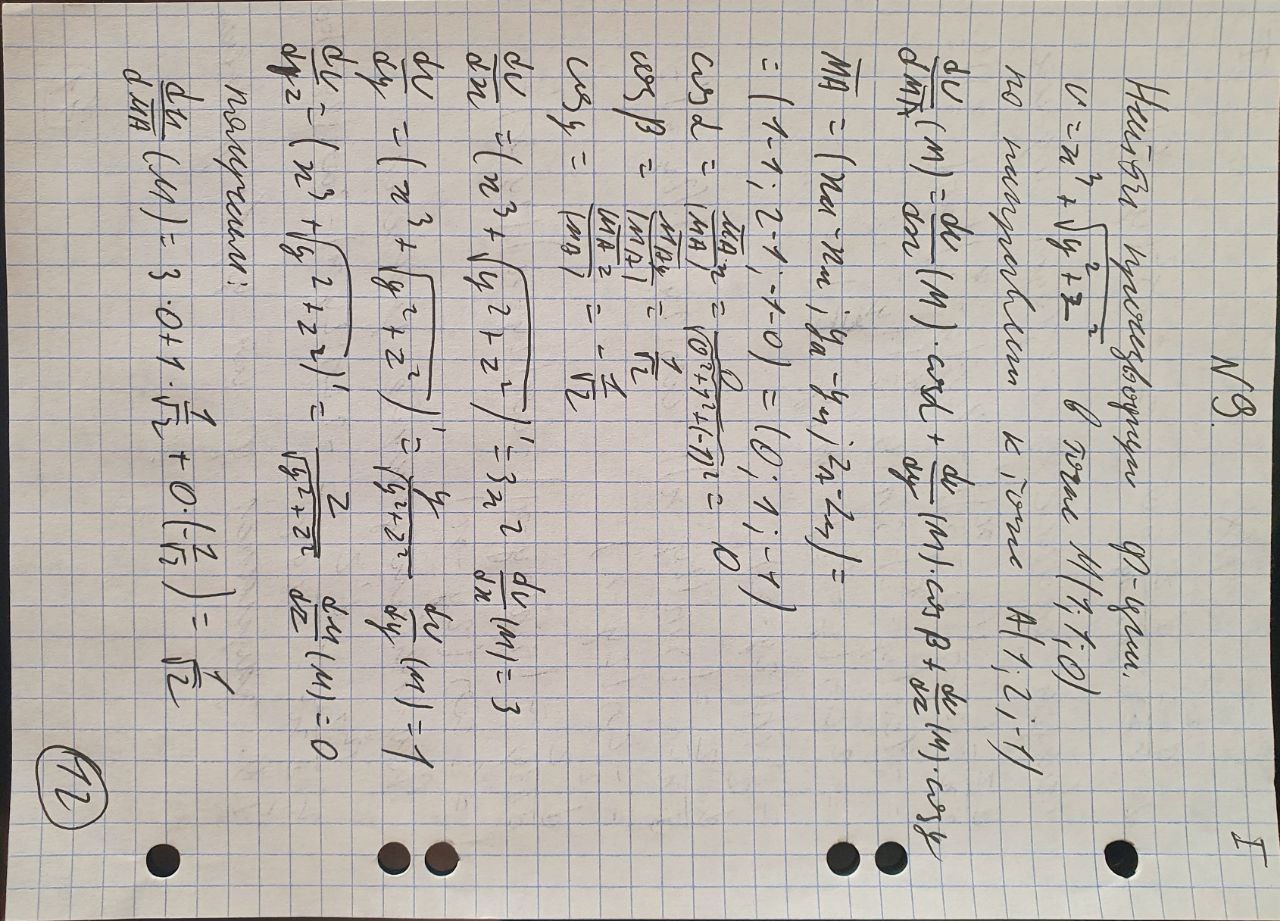 I
N9.
Найти производную ф-ции.
u = x³ + √(y² + z²) в точке M(1; 1; 0)
по направлен к точке A(1; 2; -1)
du/dMA (M) = du/dx (M) · cosα + du/dy (M) · cos β + du/dz (M) · cos γ
MA = (xₐ - xₘ ; yₐ - yₘ ; z_A - zₘ) =
= (1-1; 2-1; -1-0) = (0; 1; -1)
cosα = MAx/|MA| = 0/√(0²+1²+(-1)²) = 0
cos β = MAy/|MA| = 1/√2
cos γ = MAz/|MA| = - 1/√2
du/dx = (x³ + √(y² + z²))' = 3x² du/dx (M) = 3
du/dy = (x³ + √(y² + z²))' = y/√(y²+z²) du/dy (M) = 1
du/dz = (x³ + √(y² + z²))' = z/√(y²+z²) du/dz (M) = 0
получаем:
du/dMA (M) = 3 · 0 + 1 · 1/√2 + 0 · (-1/√2) = 1/√2
12